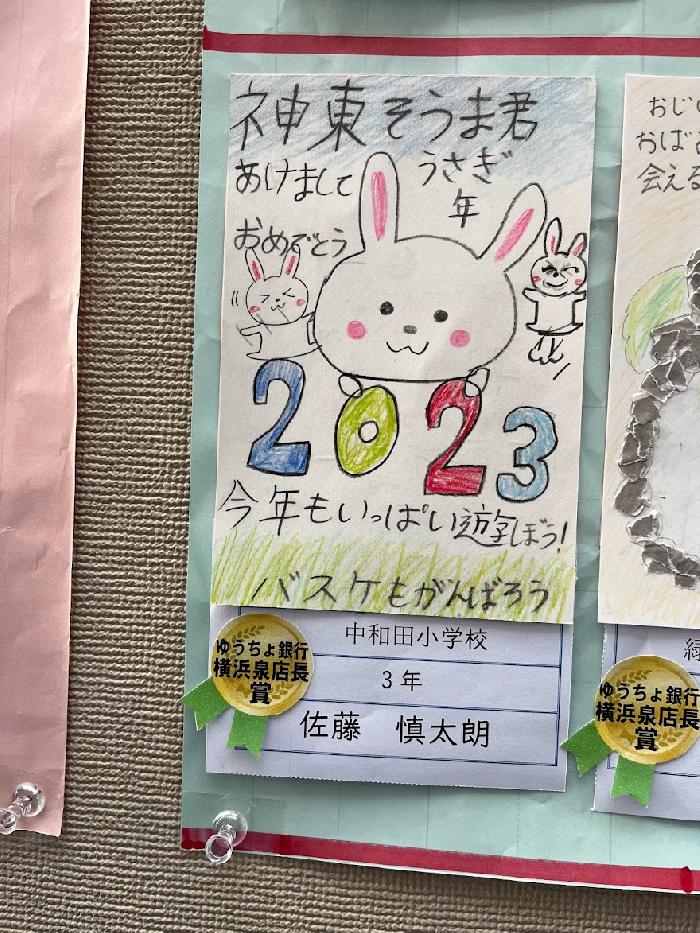 神東そうま君
あけまして
おめでとう
うさぎ
年
2023
今年もいっぱい遊ぼう!
バスケもがんばろう
中和田小学校
3年
佐藤 慎太朗
ゆうちょ銀行
横浜泉店長
賞
おじ
おば
会える
緑
ゆうちょ銀行
横浜泉店長
賞